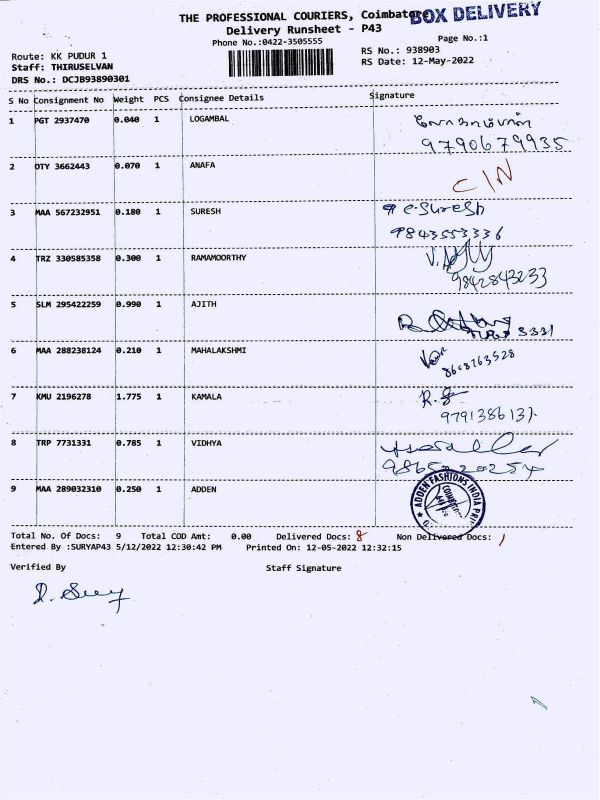 THE PROFESSIONAL COURIERS, Coimbatore
BOX DELIVERY
Delivery Runsheet - P43
Phone No.:0422-3505555
Page No.:1
Route: KK PUDUR 1
RS No.: 938903
Staff: THIRUSELVAN
RS Date: 12-May-2022
DRS No.: DCJB93890301
S No Consignment No Weight PCS Consignee Details Signature
1 PGT 2937470 0.040 1 LOGAMBAL
9790679935
2 OTY 3662443 0.070 1 ANAFA
C/N
3 MAA 567232951 0.180 1 SURESH e.suresh
9843553336
4 TRZ 330585358 0.300 1 RAMAMOORTHY
9842843233
5 SLM 295422259 0.990 1 AJITH
6 MAA 288238124 0.210 1 MAHALAKSHMI
8608763528
7 KMU 2196278 1.775 1 KAMALA
8 TRP 7731331 0.785 1 VIDHYA
9 MAA 289032310 0.250 1 ADDEN
ADDEN FASHIONS INDIA
Total No. Of Docs: 9 Total COD Amt: 0.00 Delivered Docs: 8 Non Delivered Docs: 1
Entered By :SURYAP43 5/12/2022 12:30:42 PM Printed On: 12-05-2022 12:32:15
Verified By Staff Signature